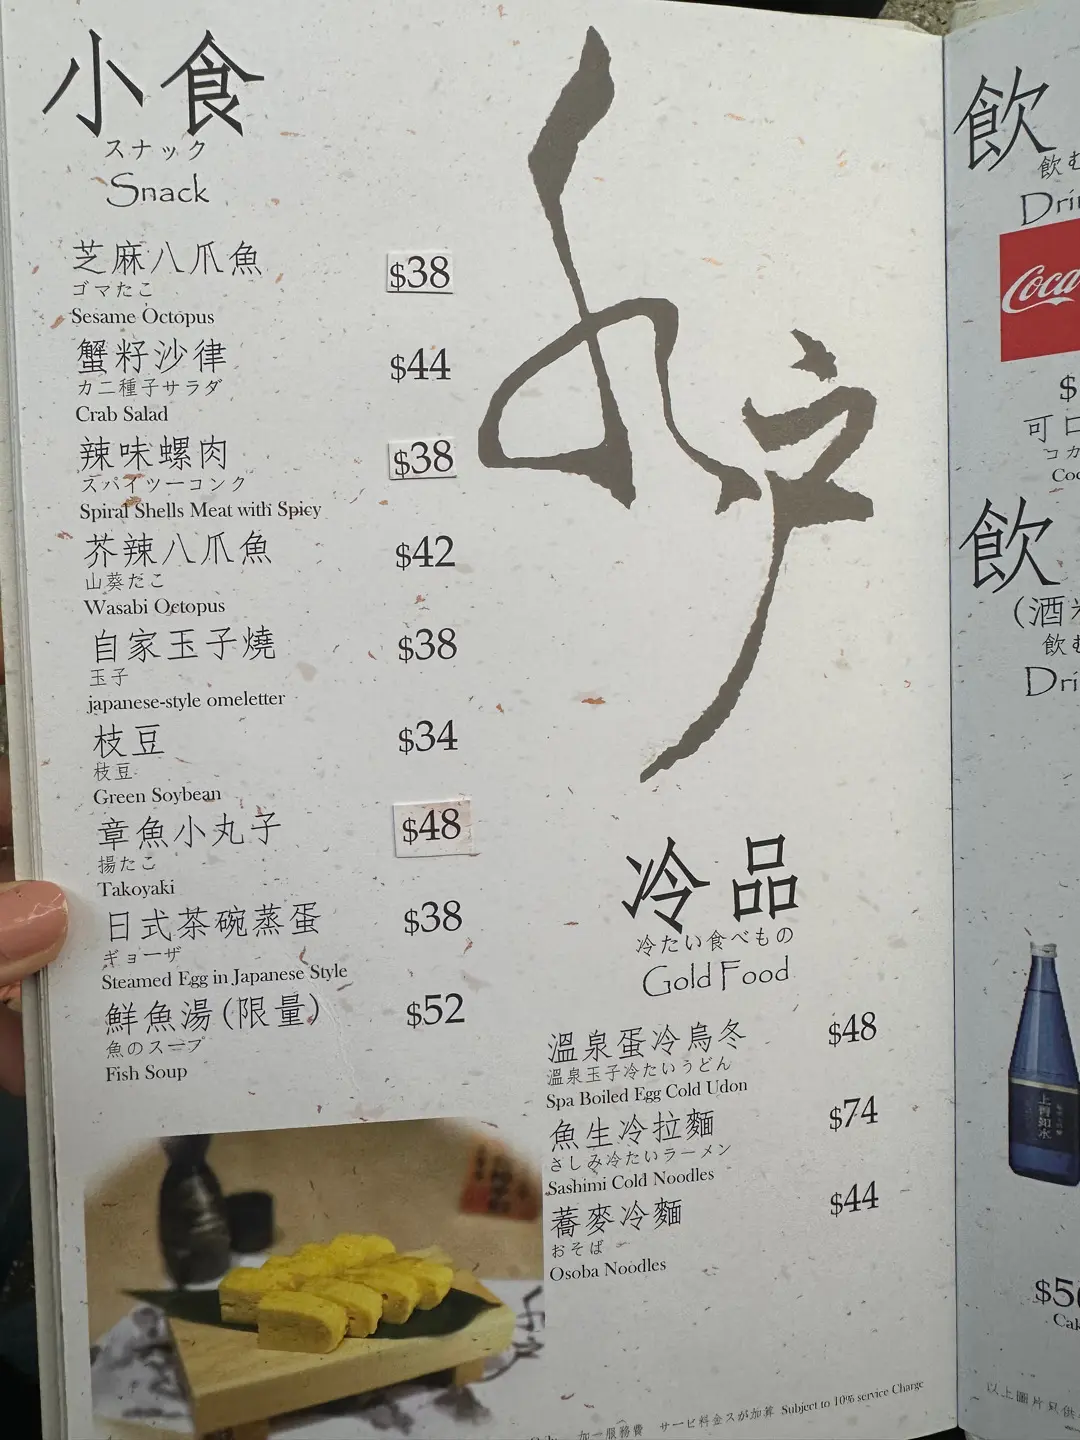 小食
スナック
Snack
芝麻八爪魚 $38
ゴマたこ
Sesame Octopus
蟹籽沙律 $44
カニ種子サラダ
Crab Salad
辣味螺肉 $38
スパイツーコンク
Spiral Shells Meat with Spicy
芥辣八爪魚 $42
山葵だこ
Wasabi Octopus
自家玉子燒 $38
玉子
japanese-style omeletter
枝豆 $34
枝豆
Green Soybean
章魚小丸子 $48
揚たこ
Takoyaki
日式茶碗蒸蛋 $38
ギョーザ
Steamed Egg in Japanese Style
鮮魚湯(限量) $52
魚のスープ
Fish Soup
水戶
冷品
冷たい食べもの
Gold Food
溫泉蛋冷烏冬 $48
溫泉玉子冷たいうどん
Spa Boiled Egg Cold Udon
魚生冷拉麵 $74
さしみ冷たいラーメン
Sashimi Cold Noodles
蕎麥冷麵 $44
おそば
Osoba Noodles
加一服務費 サービ料金スが加算 Subject to 10% service Charge
飲
飲む
Dri
Coca
$
可口
コカ
Coc
飲
(酒
飲む
Dri
上善如水
$5
Cal
以上圖片只供